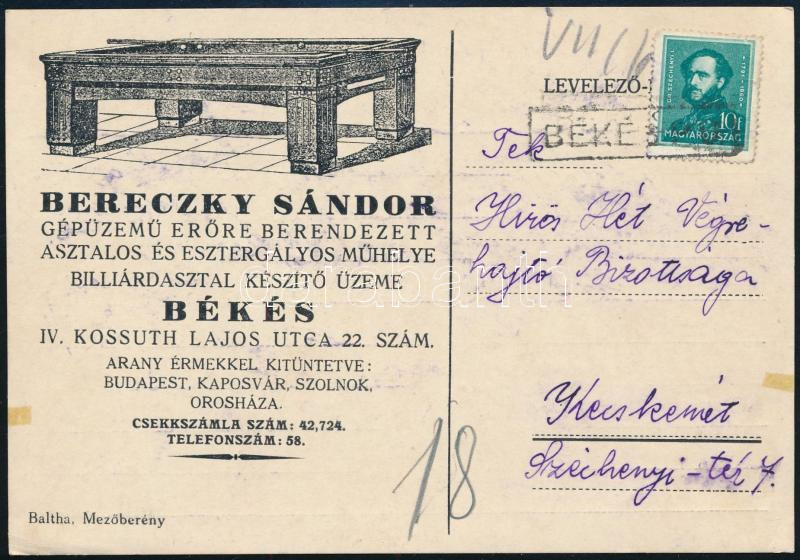 BERECZKY SÁNDOR
GÉPÜZEMŰ ERŐRE BERENDEZETT
ASZTALOS ÉS ESZTERGÁLYOS MŰHELYE
BILLIÁRDASZTAL KÉSZÍTŐ ÜZEME
BÉKÉS
IV. KOSSUTH LAJOS UTCA 22. SZÁM.
ARANY ÉRMEKKEL KITÜNTETVE:
BUDAPEST, KAPOSVÁR, SZOLNOK,
OROSHÁZA.
CSEKKSZÁMLA SZÁM: 42,724.
TELEFONSZÁM: 58.
Baltha, Mezőberény
18
VII/6
LEVELEZŐ-
GR. SZÉCHENYI I. 1791-1860
10f
MAGYARORSZÁG
BÉKÉS
Tek
Hirös Hét Végre-
hajtó Bizottsága
Kecskemét
Széchenyi-tér 7.